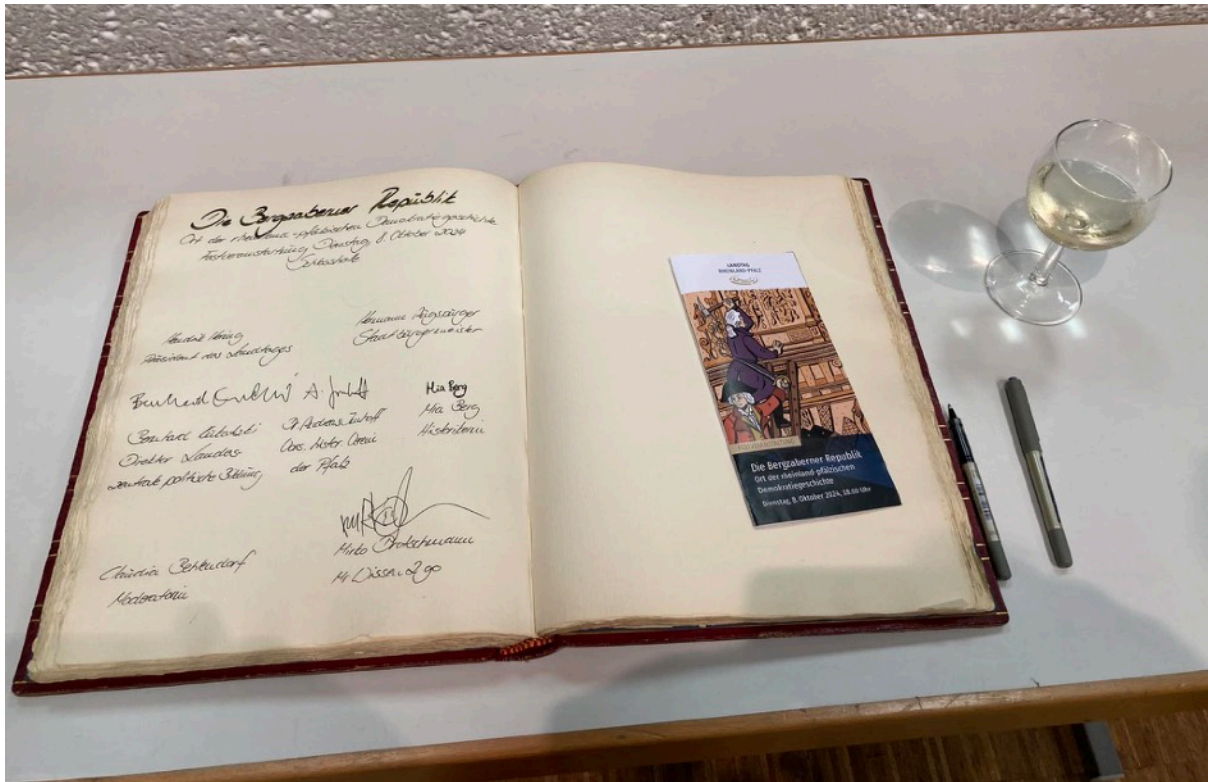 Die Bergzaberner Republik
Ort der rheinland-pfälzischen Demokratiegeschichte
Festveranstaltung Dienstag, 8. Oktober 2024
Schlosshalle
Hendrik Hering
Präsident des Landtages
Hermann Augspurger
Stadtbürgermeister
Bernhard
Bernhard Kukatzki
Direktor Landes-
zentrale politische Bildung
A. Imhoff
Dr. Andreas Imhoff
Vors. Histor. Verein
der Pfalz
Mia Berg
Mia Berg
Historikerin
Mirko Drotschmann
MrWissen2go
Claudia Dehendorf
Moderatorin
LANDTAG
RHEINLAND-PFALZ
FESTVERANSTALTUNG
Die Bergzaberner Republik
Ort der rheinland-pfälzischen
Demokratiegeschichte
Dienstag, 8. Oktober 2024, 18.00 Uhr